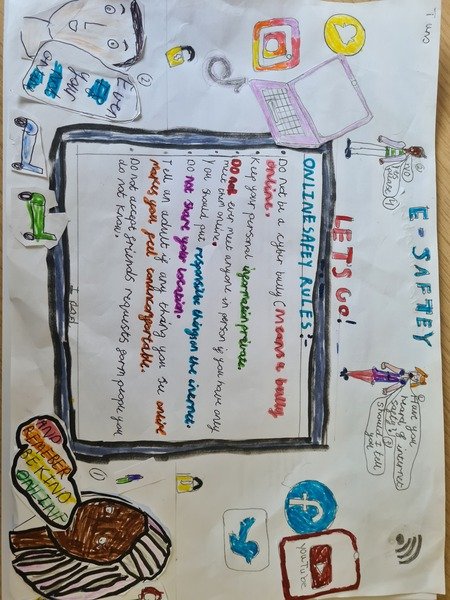 E-SAFTEY
LETS GO!
Have you
heard of internet
safety?
should I tell
you
ONLINE SAFTY RULES:-
Do not be a cyber bully (Means a bully
online.
Keep your personal
Do not ever meet anyone in person if you have only
met them online.
You should put responsible things on the internet.
Do not share your location.
Tell an adult if any thing you see online
makes you feel
Do not accept friends requests form people you
do not know.
YouTube
AND
REMEBER
BE KIND
ONLINE